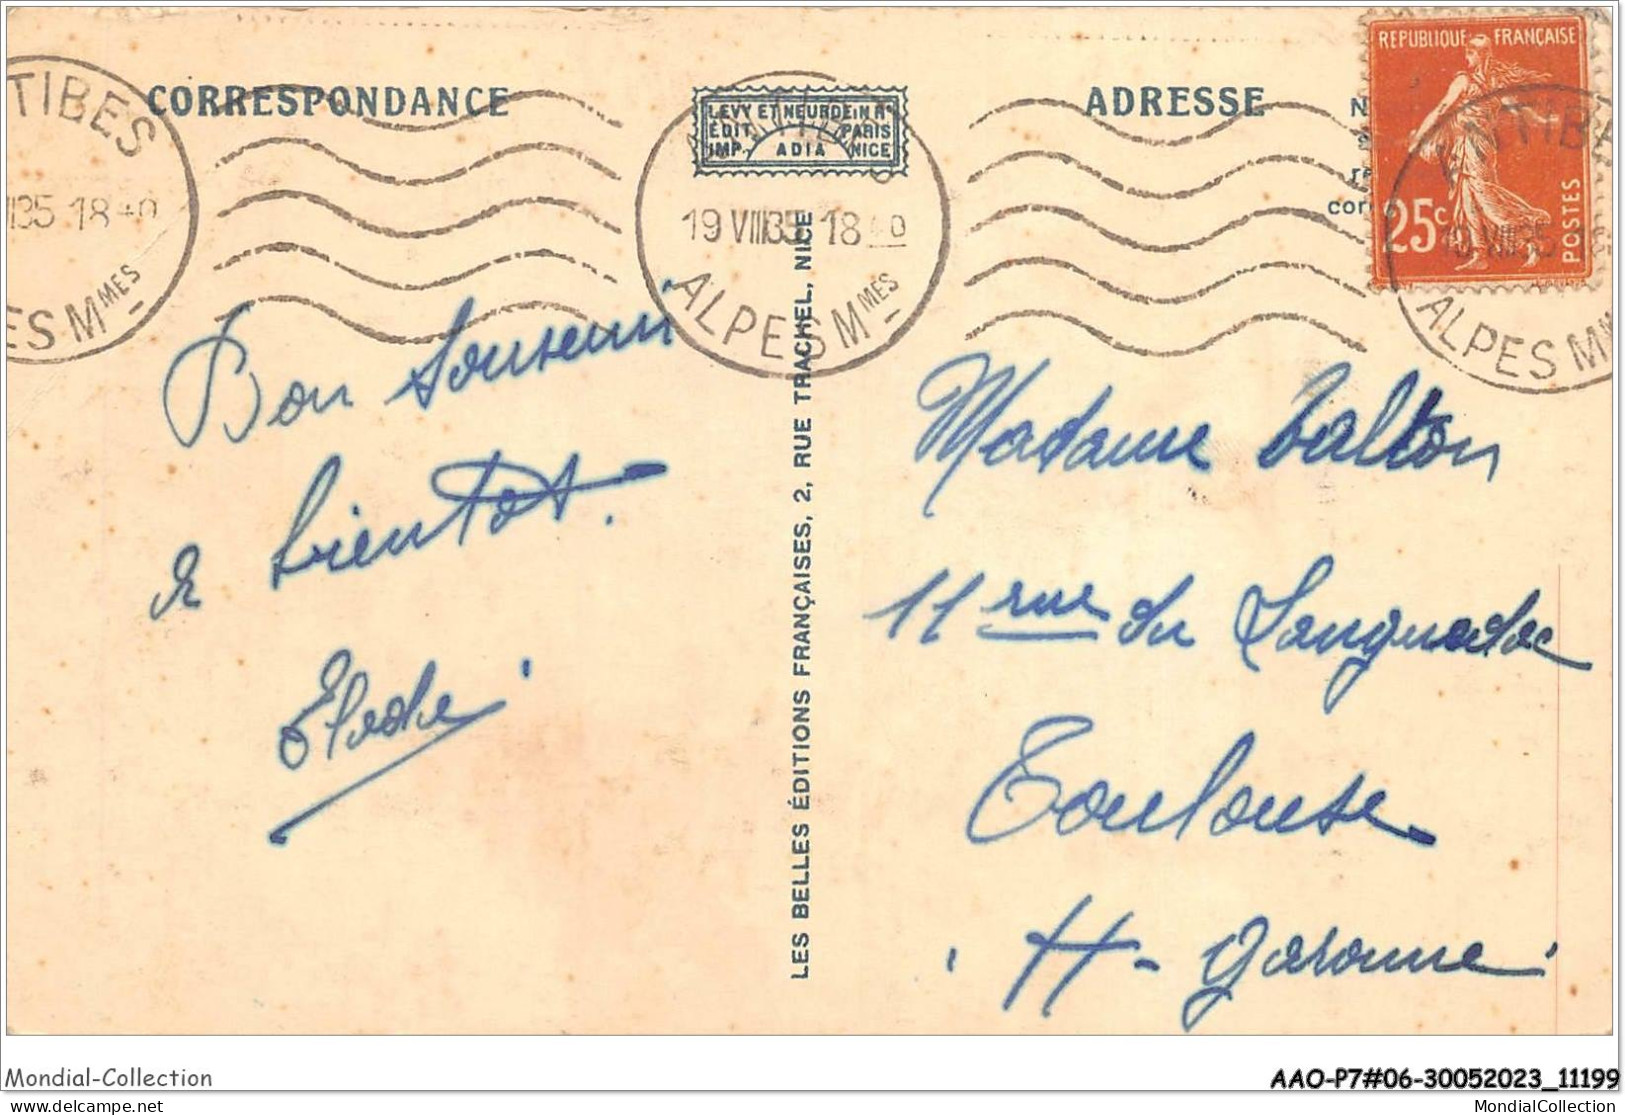 CORRESPONDANCE
LEVY ET NEURDEIN Rs
ÉDIT. PARIS
IMP. ADIA NICE
ADRESSE
N
cor
REPUBLIQUE FRANÇAISE
25c
POSTES
TIBES
VIII35 18 40
ES MMES
19 VIII35 18 40
ALPES MMES
ANTIBE
19 VIII35
ALPES M
LES BELLES ÉDITIONS FRANÇAISES, 2, RUE TRACHEL, NICE
Bon Souvenir
a bientot.
Elodie
Madame
11 rue du Languedoc
Toulouse
H-Garonne
Mondial-Collection
AAO-P7#06-30052023_11199
delcampe.net
MondialCollection